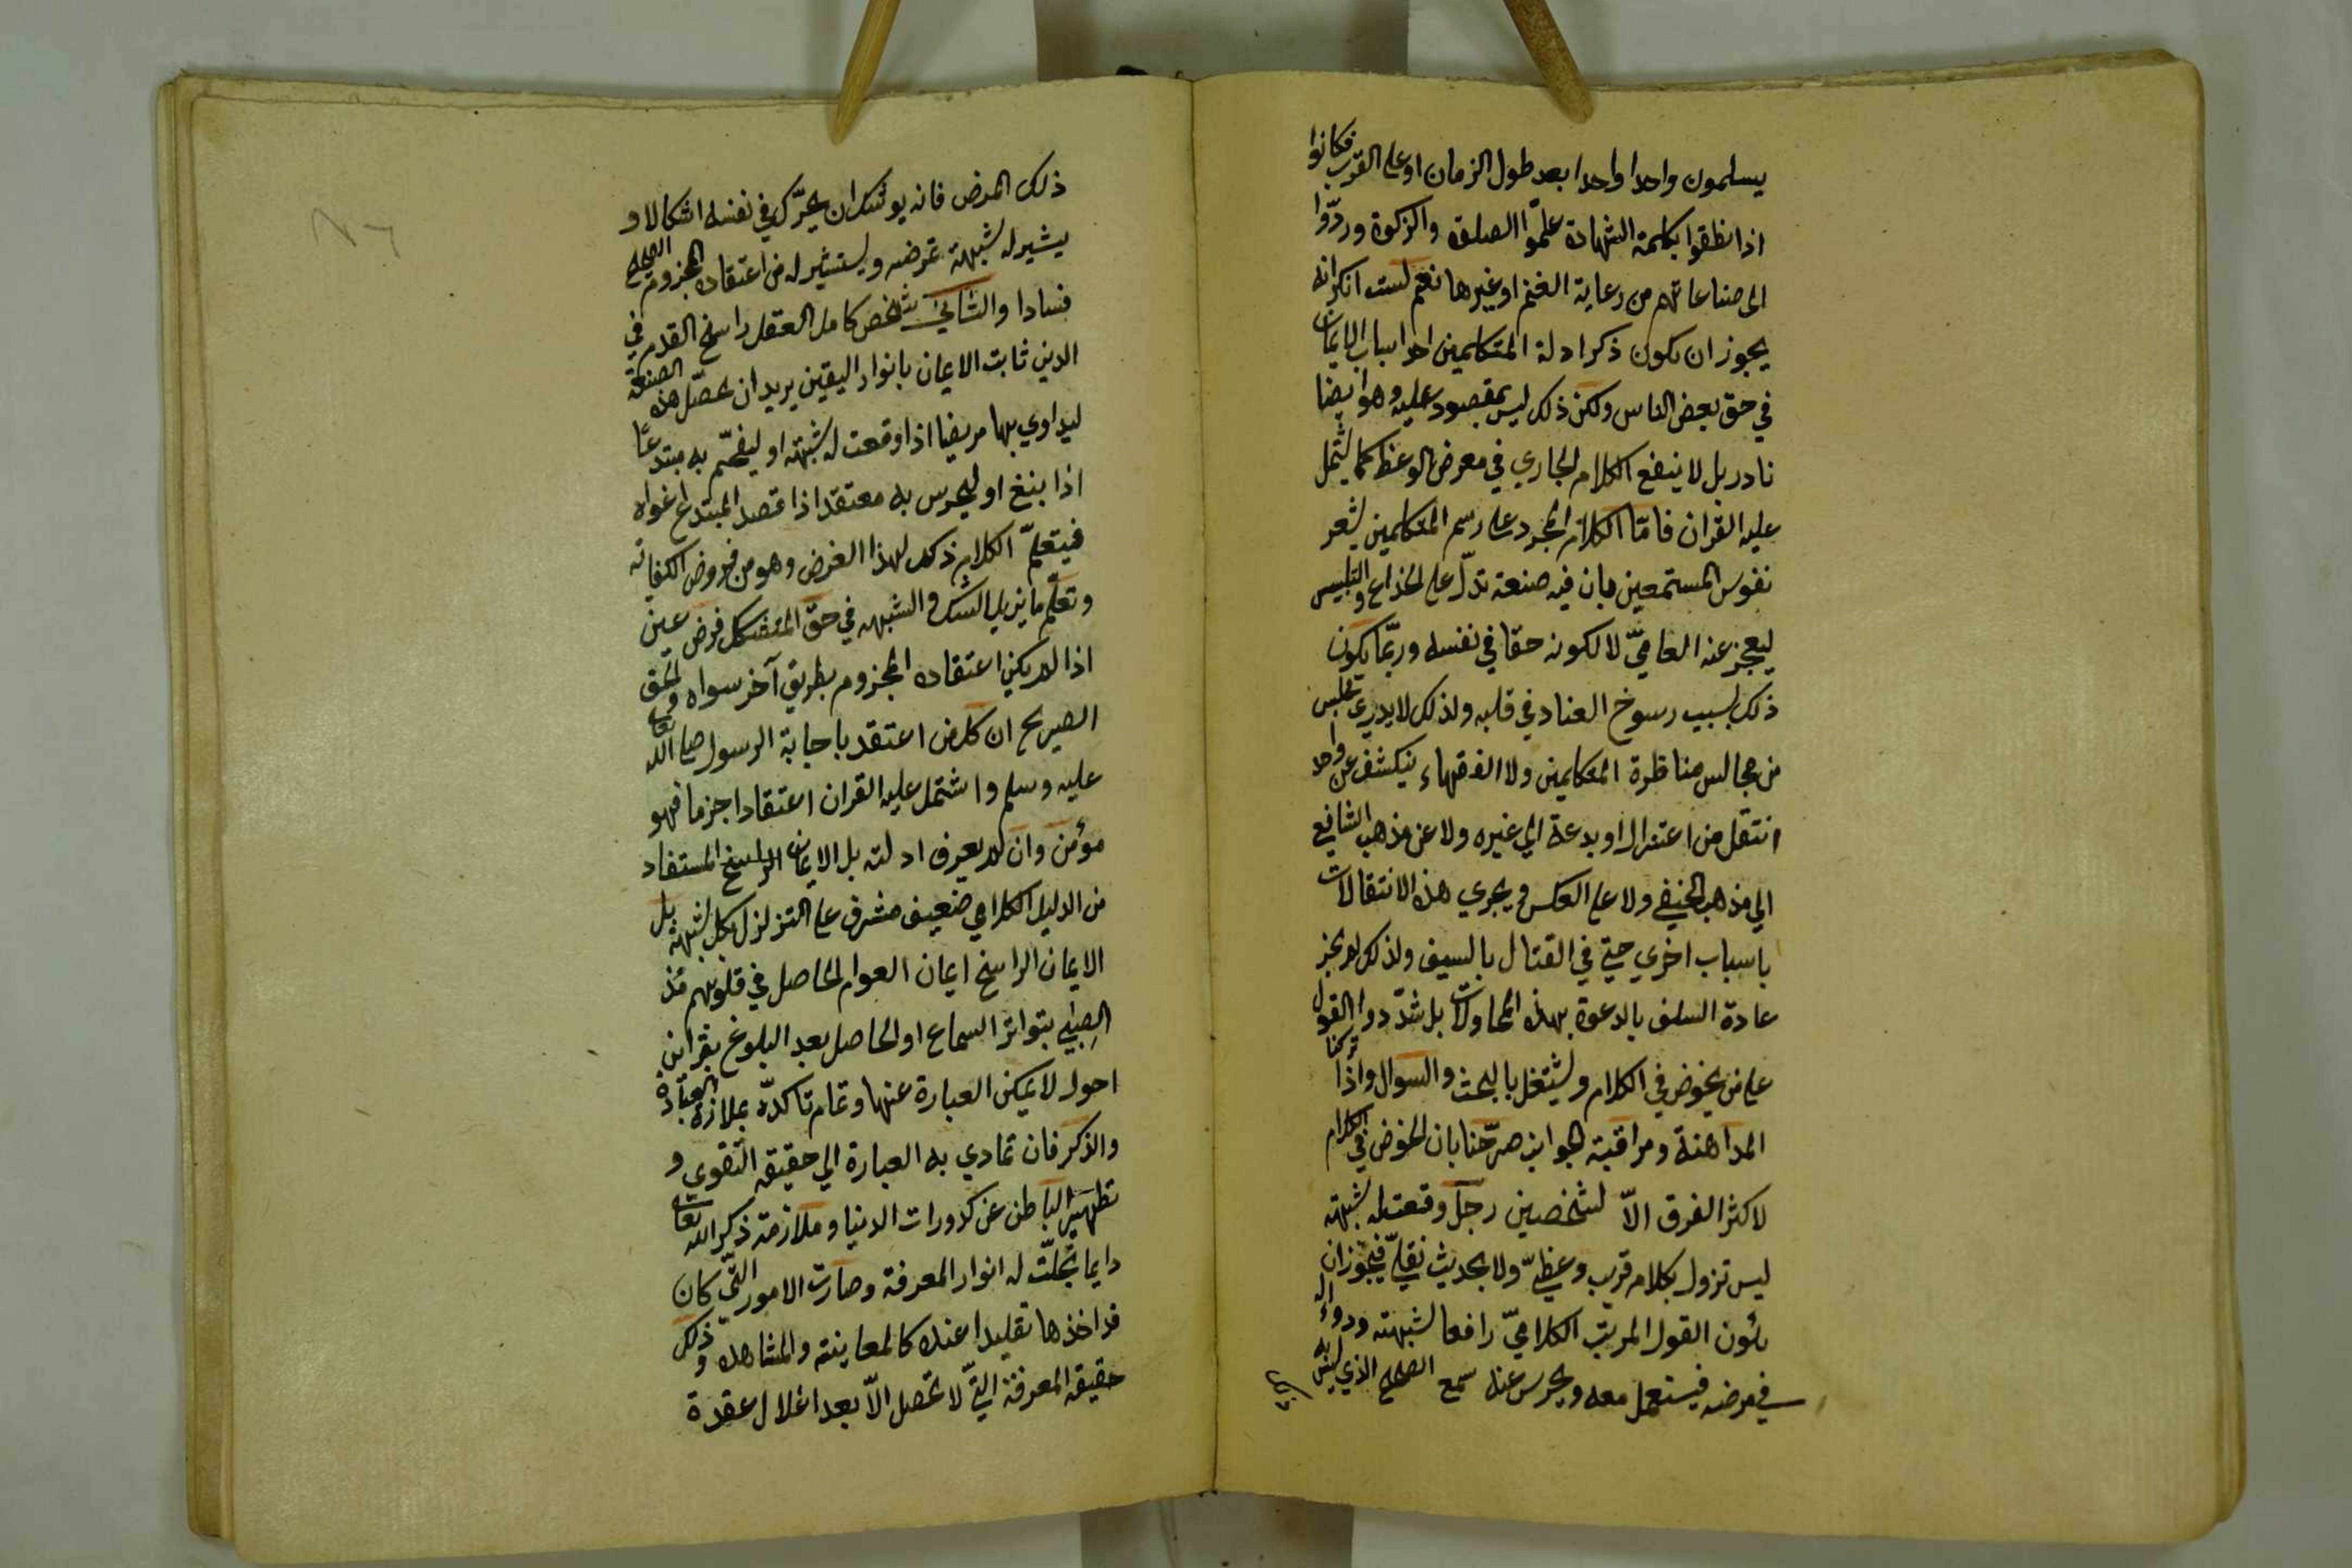 يسلمون واحدا واحدا بعد طول الزمان او على القرب فكانوا
اذا نطقوا بكلمة الشهادة علّموا الصلوة والزكوة وردّوا
الى صناعاتهم من رعاية الغنم او غيرها نعم لست انكر انه
يجوز ان يكون ذكر ادلة المتكلمين احد اسباب الايمان
في حق بعض الناس ولكن ذلك ليس بمقصود عليه وهو ايضا
نادر بل لا ينفع الكلام الجاري في معرض الوعظ كما يشتمل
عليه القران فامّا الكلام المجرد على رسم المتكلمين يشعر
نفوس المستمعين بان فيه صنعة تدلّ على الخداع والتلبيس
ليعجز عنه العاميّ لا لكونه حقا في نفسه وربّما يكون
ذلك بسبب رسوخ العناد في قلبه ولذلك لا يدرى مجلس
من مجالس مناظرة المتكلمين ولا الفقهاء ينكشف عن واحد
انتقل من اعتزال او بدعة الي غيره ولا عن مذهب الشافعي
الي مذهب الحنيفي ولا على العكس ويجري هذه الانتقالات
باسباب اخري حتي في القتال بالسيف ولذلك لم يجز
عادة السلف بالدعوة بهذه المحاولات بل شدّدوا القول
على من يخوض في الكلام ويشتغل بالبحث والسوال واذا تركنا
المداهنة ومراقبة الجوانب صرّحنا بان الخوض في الكلام
لاكثر الفرق الاّ لشخصين رجل وقعت له شبهة
ليس تزول بكلام قريب وعظيّ ولا بحديث نقليّ فيجوز ان
يكون القول المرتب الكلاميّ رافعا لشبهته ودواء له
في مرضه فيستعمل معه ويحرس عنه سمع الصحيح الذي ليس به
ذلك المرض فانه يوشك ان يحرّك في نفسه اشكالا و
يشير له شبهة تمرضه ويستثير له من اعتقاده المجزوم الصحيح
فسادا والثاني شخص كامل العقل راسخ القدم في
الدين ثابت الايمان بانوار اليقين يريد ان يحصّل هذه الصنعة
ليداوي بها مريضا اذا وقعت له شبهة او ليفحّم به مبتدعًا
اذا بنغ او ليحرس به معتقد اذا قصد المبتدع اغواه
فيتعلّم الكلام ذلك لهذا الغرض وهو من فروض الكفاية
وتعلّم ما يزيل الشك والشبهه في حقّ المتشكك فرض عين
اذا لم يكن اعتقاده المجزوم بطريق آخر سواه والحق
الصريح ان كل من اعتقد باجابة الرسول صلى الله تعالى
عليه وسلم واشتمل عليه القران اعتقادا جزما فهو
مؤمن وان لم يعرف ادلته بل الايمان الراسخ المستفاد
من الدليل الكلامي ضعيف مشرف على التزلزل بكل شبهة بل
الايمان الراسخ ايمان العوام الحاصل في قلوبهم مُذ
الصِبي بتواتر السماع او الحاصل بعد البلوغ بقراين
احوال لا يمكن العبارة عنها وتمام تاكدّه بملازمة العبادة
والذكر فان تمادي به العبارة الي حقيقه التقوي و
تطهير الباطن عن كدورات الدنيا وملازمة ذكر الله تعالى
دايما تجلّت له انوار المعرفة وصارت الامور التّي كان
قد اخذها تقليدا عنده كالمعاينة والمشاهده وذلك
حقيقه المعرفة التّي لا تحصل الاّ بعد انحلال عقدة